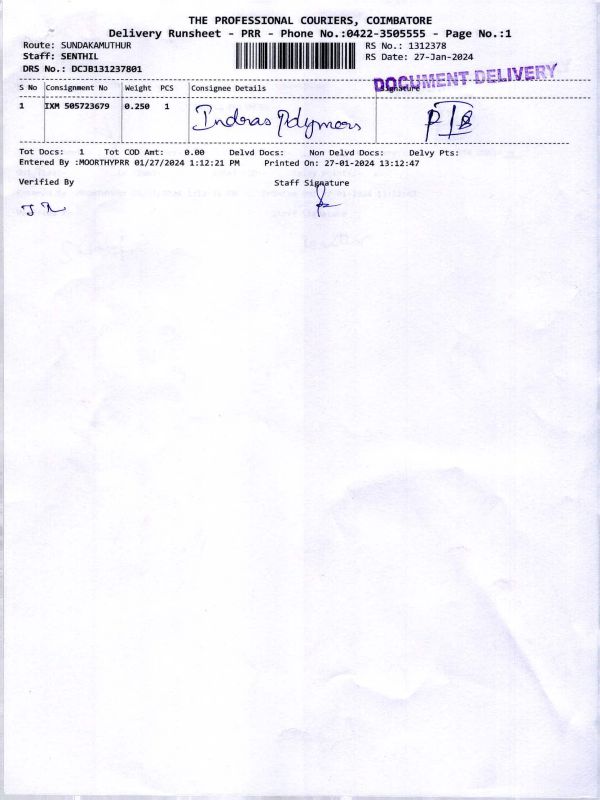 THE PROFESSIONAL COURIERS, COIMBATORE
Delivery Runsheet - PRR - Phone No.:0422-3505555 - Page No.:1
Route: SUNDAKAMUTHUR RS No.: 1312378
Staff: SENTHIL RS Date: 27-Jan-2024
DRS No.: DCJB131237801
DOCUMENT DELIVERY
S No Consignment No Weight PCS Consignee Details Signature
1 IXM 505723679 0.250 1 Indras Polymers
Tot Docs: 1 Tot COD Amt: 0.00 Delvd Docs: Non Delvd Docs: Delvy Pts:
Entered By :MOORTHYPRR 01/27/2024 1:12:21 PM Printed On: 27-01-2024 13:12:47
Verified By Staff Signature